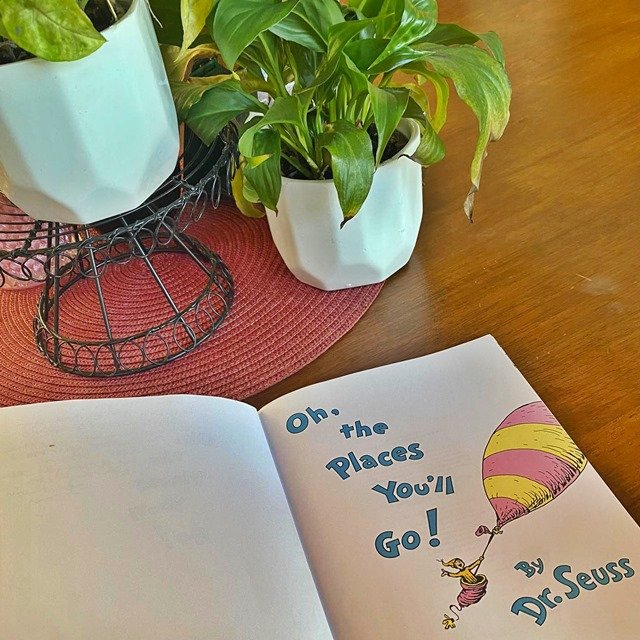 Oh,
the
Places
You'll
Go!
By
Dr. Seuss